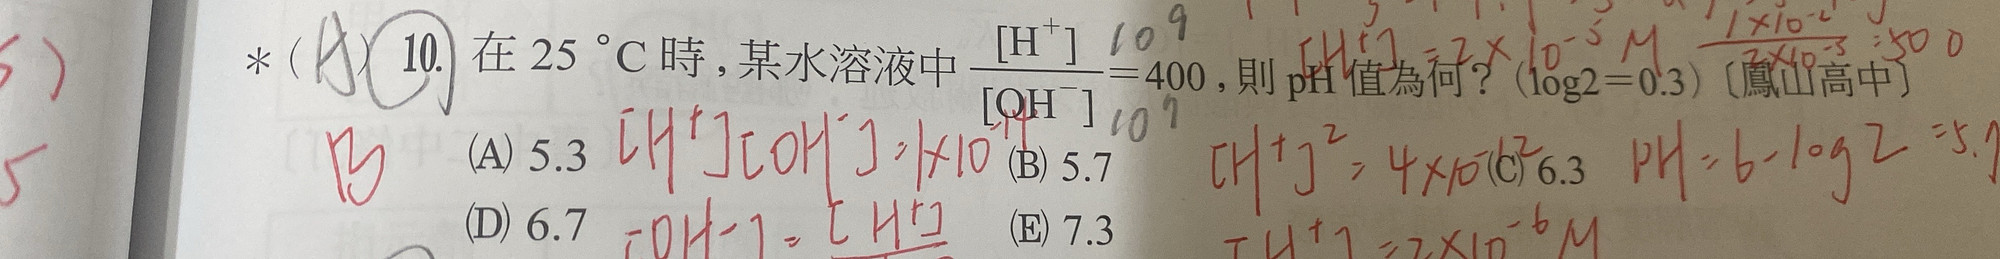 *(A) 10. 在 25 °C 時，某水溶液中 [H⁺]/[OH⁻] = 400，則 pH 值為何？(log2=0.3)〔鳳山高中〕
10⁹
10⁷
[H⁺] = 2×10⁻⁵ M
1×10⁻² / 2×10⁻⁵ = 500
B
(A) 5.3 (B) 5.7 (C) 6.3
[H⁺][OH⁻] = 1×10⁻¹⁴
[H⁺]² = 4×10⁻¹²
PH = 6-log2 = 5.7
(D) 6.7 (E) 7.3
[OH⁻] = [H⁺]
[H⁺] = 2×10⁻⁶ M
5)
5